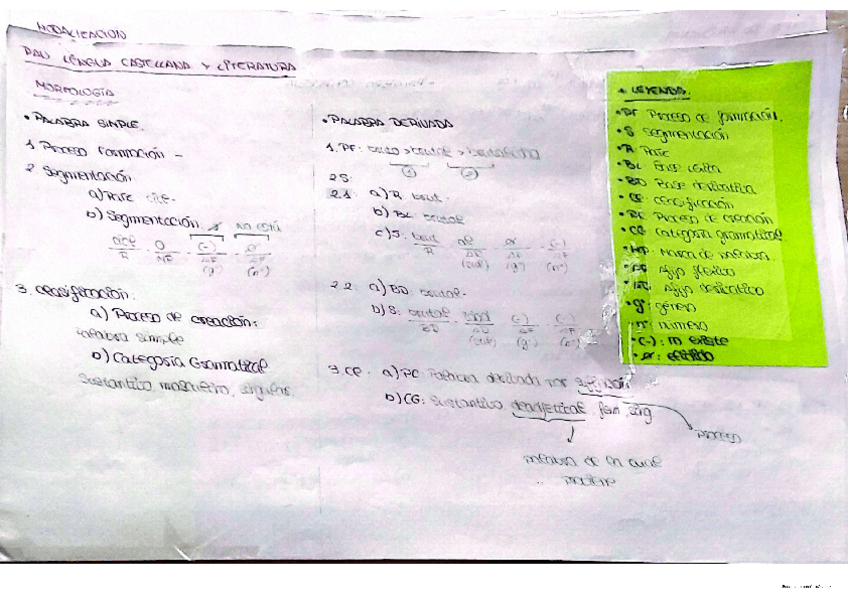 MODALIZACIÓN
PAU LENGUA CASTELLANA Y LITERATURA
MORFOLOGÍA
• PALABRA SIMPLE.
1 Proceso formación -
2 Segmentación
a) Raíz
b) Segmentación no está
R (-) ø
(g) (nº)
3. Clasificación:
a) Proceso de creación:
Palabra simple
b) Categoría Gramatical
Sustantivo masculino, singular.
• PALABRA DERIVADA
1. PF: bruto > brutal > brutalidad
① ②
2 S:
2.1. a) R. brut-
b) BL: brutal
c) S: brut al ø (-)
R
(suf) (g) (nº)
2.2. a) BD: brutal-
b) S: brutal idad (-) (-)
BD
(suf) (g)
3. Cl. a) PC: Palabra derivada por sufijación
b) CG: Sustantivo deadjetival fem, sing
proceso
palabra de la cual
procede
• LEYENDA.
• PF Proceso de formación.
• S Segmentación
• R Raíz
• BL Base léxica
• BD Base derivativa
• CL Clasificación
• PC Proceso de creación
• CG Categoría gramatical
• Marca de palabra.
• AF Afijo flexivo
• AD Afijo derivativo
• g: género
nº: número
• (-): no existe
• ø: elidido